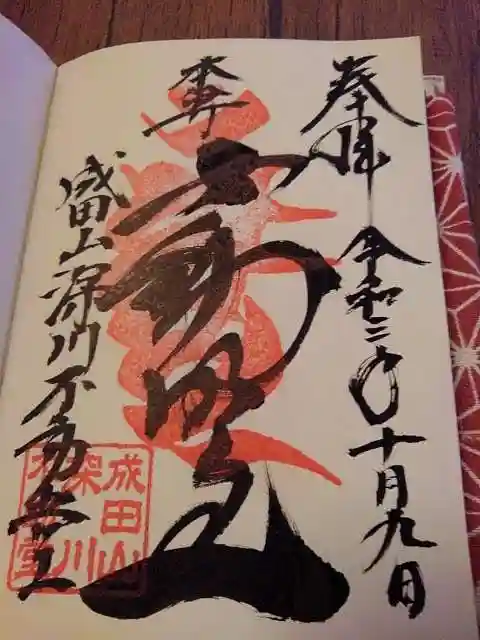 奉拝
令和二年十月九日
本尊
不動明王
成田山深川不動堂
成田山
深川
不動堂